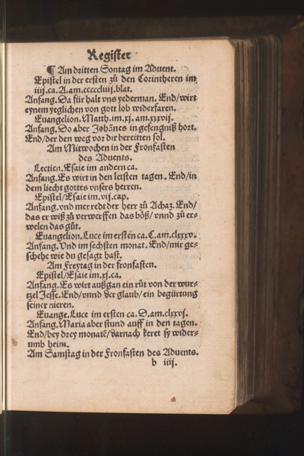 Register
¶ Am dritten Sontag im Advent.
Epistel in der ersten zů den Corintheren im
iiij.ca. A.am.ccccclvij.blat.
Anfang. Da für halt vns yederman. End/wirt
eynem yeglichen von gott lob widerfaren.
Euangelion. Matth.im.xj. am.xxxvij.
Anfang. So aber Johānes in gefengnuß hort.
End/der den weg vor dir bereitten sol.
Am Mitwochen in der Fronfasten
des Aduents.
Lectien. Esaie im andern ca.
Anfang. Es wirt in den letsten tagen. End/in
dem liecht gottes vnsers herren.
Epistel/Esaie im.vij.cap.
Anfang. vnd mer redt der herr zů Achaz. End/
das er wiß zů verwerffen das böß/ vnnd zů er=
welen das gůt.
Euangelion. Luce im ersten ca. C.am.clxxxv.
Anfang. Vnd im sechsten monat. End/mir ge=
schehe wie du gesagt hast.
Am Freytag in der fronfasten.
Epistel/Esaie im.xj.ca.
Anfang. Es wirt außgan ein růt von der wur=
tzel Jesse. End/vnnd der glaub/ ein begürtung
seiner nieren.
Euange. Luce im ersten ca. D.am.clxxvj.
Anfang. Maria aber stund auff in den tagen.
End/bey drey monatē/darnach keret sy wider=
umb heim.
Am Samstag in der Fronfasten des Aduents.
b iiij.